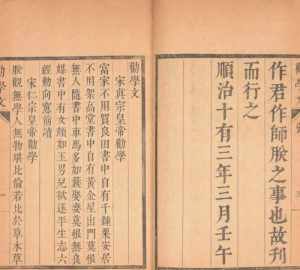 作君作師朕之事也故刊
而行之
順治十有三年三月壬午
勸學文
宋真宗皇帝勸學
富家不用買良田書中自有千鍾粟安居
不用架高堂書中自有黃金屋出門莫恨
無人隨書中車馬多如簇娶妻莫恨無良
媒書中有女顏如玉男兒欲遂平生志六
經勤向窻前讀
宋仁宗皇帝勸學
朕觀無學人無物堪比倫若比於草木草